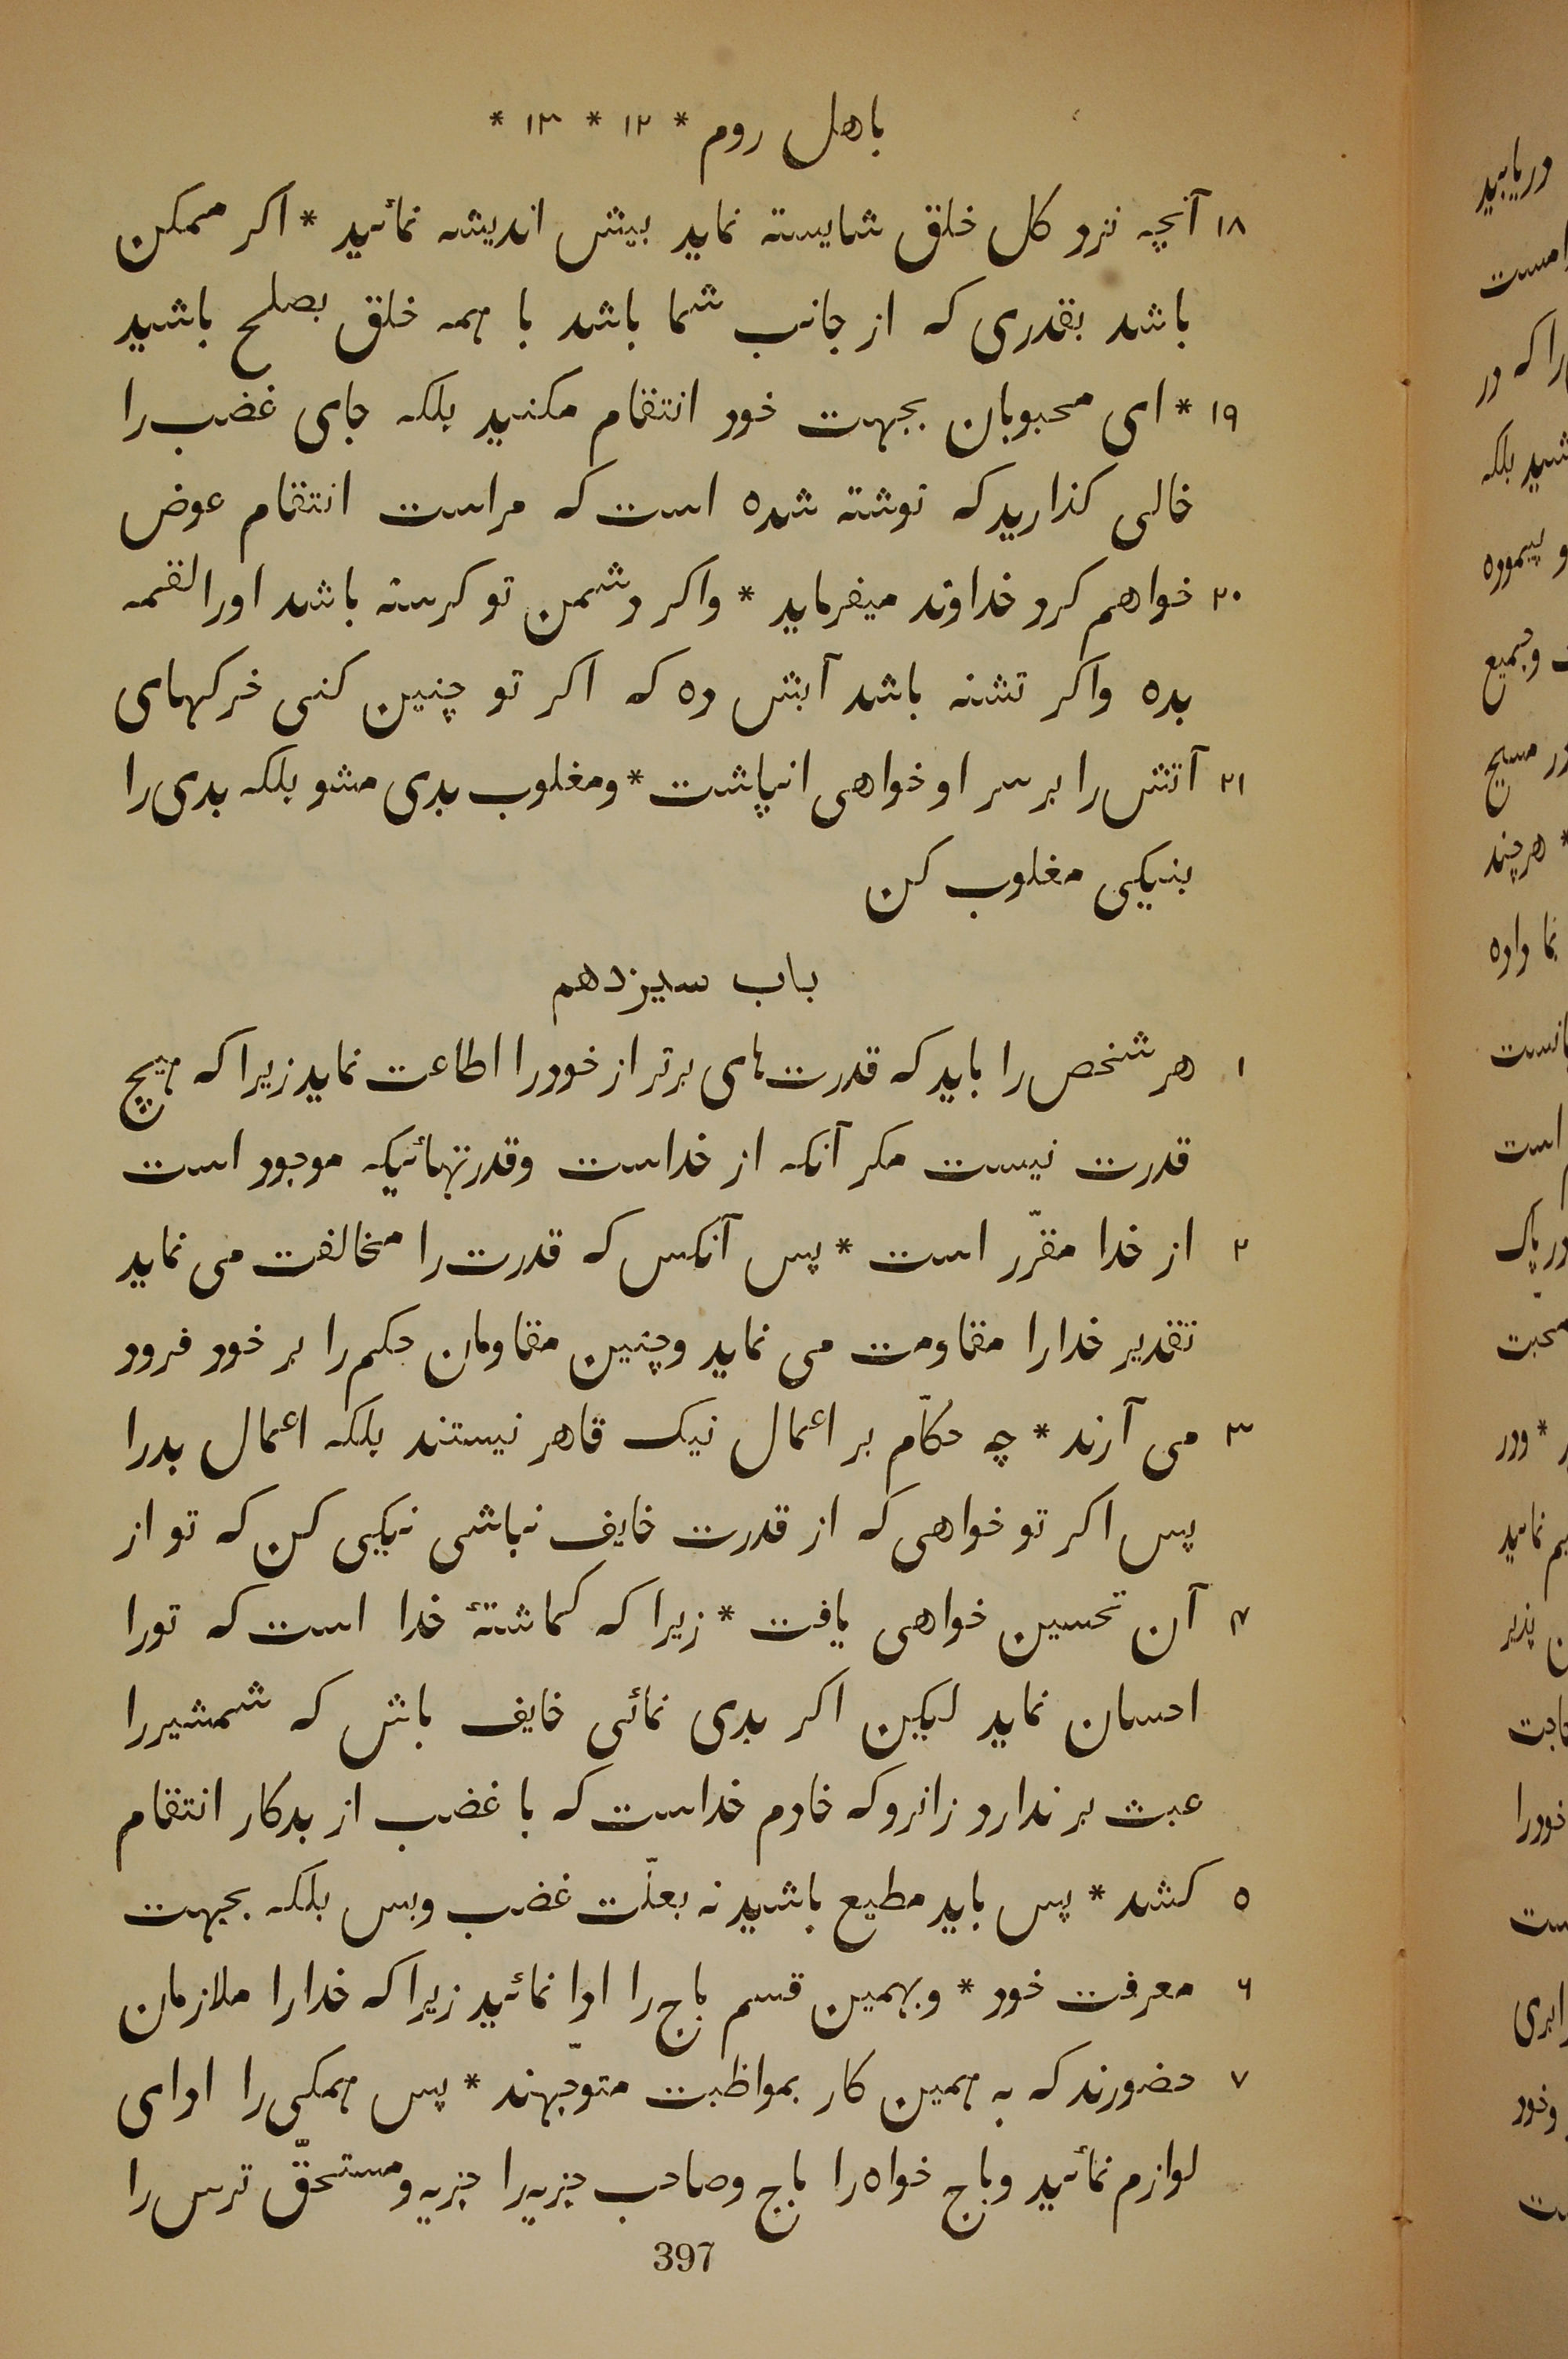 باهل روم * ۱۲ * ۱۳ *
۱۸ آنچه نزد کل خلق شایسته نماید بیش اندیشه نمائید * اکر ممکن
باشد بقدری که از جانب شما باشد با همه خلق بصلح باشید
۱۹ * ای محبوبان بجهت خود انتقام مکنید بلکه جای غضب را
خالی کذارید که نوشته شده است که مراست انتقام عوض
۲۰ خواهم کرد خداوند میفرماید * واکر دشمن تو کرسنه باشد اورا لقمه
بده واکر تشنه باشد آبش ده که اکر تو چنین کنی خرکهای
۲۱ آتش را بر سر او خواهی انپاشت * ومغلوب بدی مشو بلکه بدی را
بنیکیی مغلوب کن
باب سیزدهم
۱ هر شخص را باید که قدرت‌های برتر از خود را اطاعت نماید زیرا که هیچ
قدرت نیست مکر آنکه از خداست وقدرتهائیکه موجود است
۲ از خدا مقرّر است * پس آنکس که قدرت را مخالفت می نماید
تقدیر خدارا مقاومت می نماید وچنین مقاومان حکم را بر خود فرود
۳ می آرند * چه حکّام بر اعمال نیک قاهر نیستند بلکه اعمال بدرا
پس اکر تو خواهی که از قدرت خایف نباشی نیکیی کن که تو از
۴ آن تحسین خواهی یافت * زیرا که کماشتهٔ خدا است که تورا
احسان نماید لیکین اکر بدی نمائی خایف باش که شمشیررا
عبث بر ندارد زانرو که خادم خداست که با غضب از بدکار انتقام
۵ کشد * پس باید مطیع باشید نه بعلّت غضب وبس بلکه بجهت
۶ معرفت خود * وبهمین قسم باج را ادا نمائید زیرا که خدارا ملازمان
۷ حضورند که به همین کار بمواظبت متوجّهند * پس همکی را ادای
لوازم نمائید وباج خواه را باج وصاحب جزیه‌را جزیه ومستحقّ ترس را
397